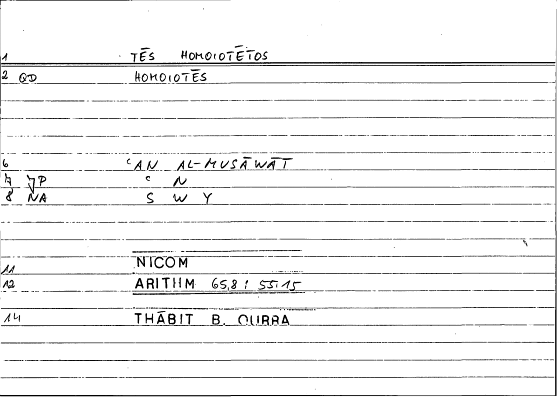 1 TĒS HOMOIOTĒTOS
2 GD HOMOIOTĒS
6 ʿAN AL-MUSĀWĀT
7 P ʿ N
8 NA S W Y
11 NICOM
12 ARITHM 65,8 : 55,15
14 THĀBIT B. QURRA